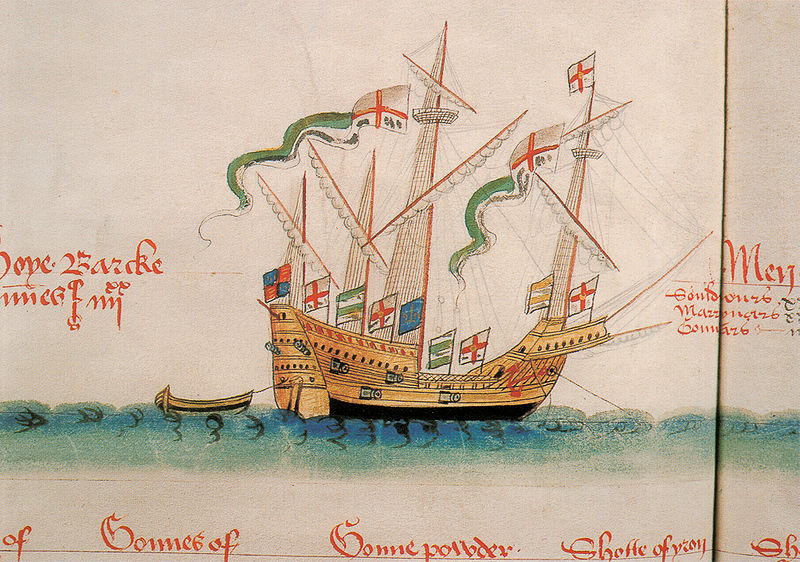 Hoye · Barcke
Men
Souldiours
Marrynars
Gonnars
of
Gonnes of
Gonne powder ·
Shotte of yron
Sh